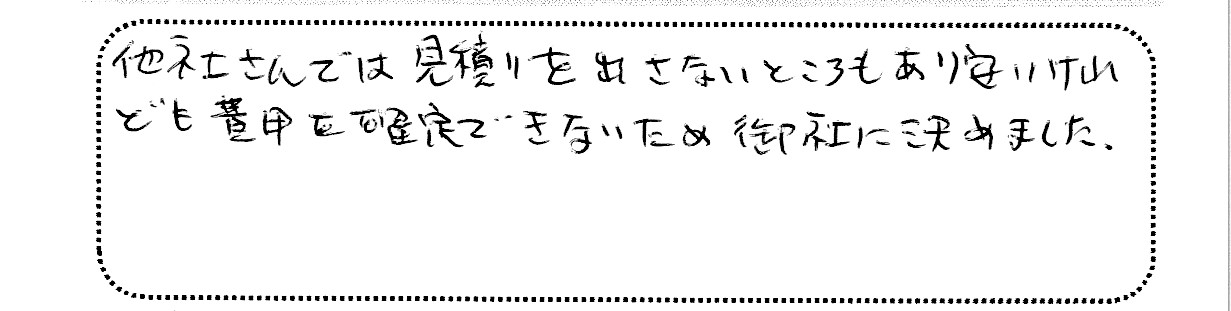 他社さんでは見積りを出さないところもあり安いけれ
ども費用を確定できないため御社に決めました.